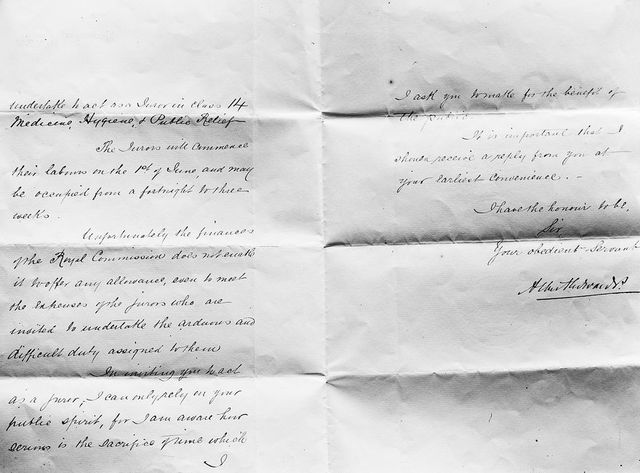 undertake to act as a Juror in class 14
Medicine, Hygiene, & Public Relief
The Jurors will commence
their labours on the 1st of June, and may
be occupied from a fortnight to three
weeks.
Unfortunately the finances
of the Royal Commission does not enable
it to offer any allowance, even to meet
the expenses of the Jurors who are
invited to undertake the arduous and
difficult duty assigned to them
In inviting you to act
as a Juror, I can only rely on your
public spirit, for I am aware how
serious is the sacrifice of time which
I
I ask you to make for the benefit of
the public.
It is important that I
should receive a reply from you at
your earliest convenience. -
I have the honour to be,
Sir
Your obedient Servant